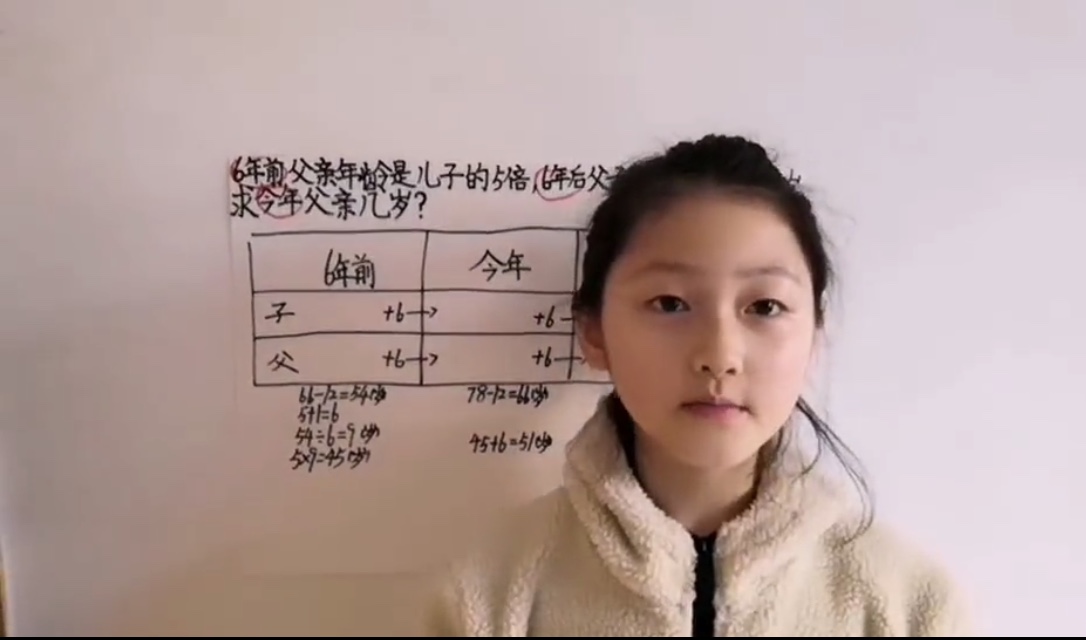 6年前父亲年龄是儿子的5倍,6年后父子
求今年父亲几岁?
6年前 今年
子 +6→ +6
父 +6→ +6→
66-12=54(岁) 78-12=66(岁)
5+1=6
54÷6=9(岁) 45+6=51(岁)
5×9=45(岁)